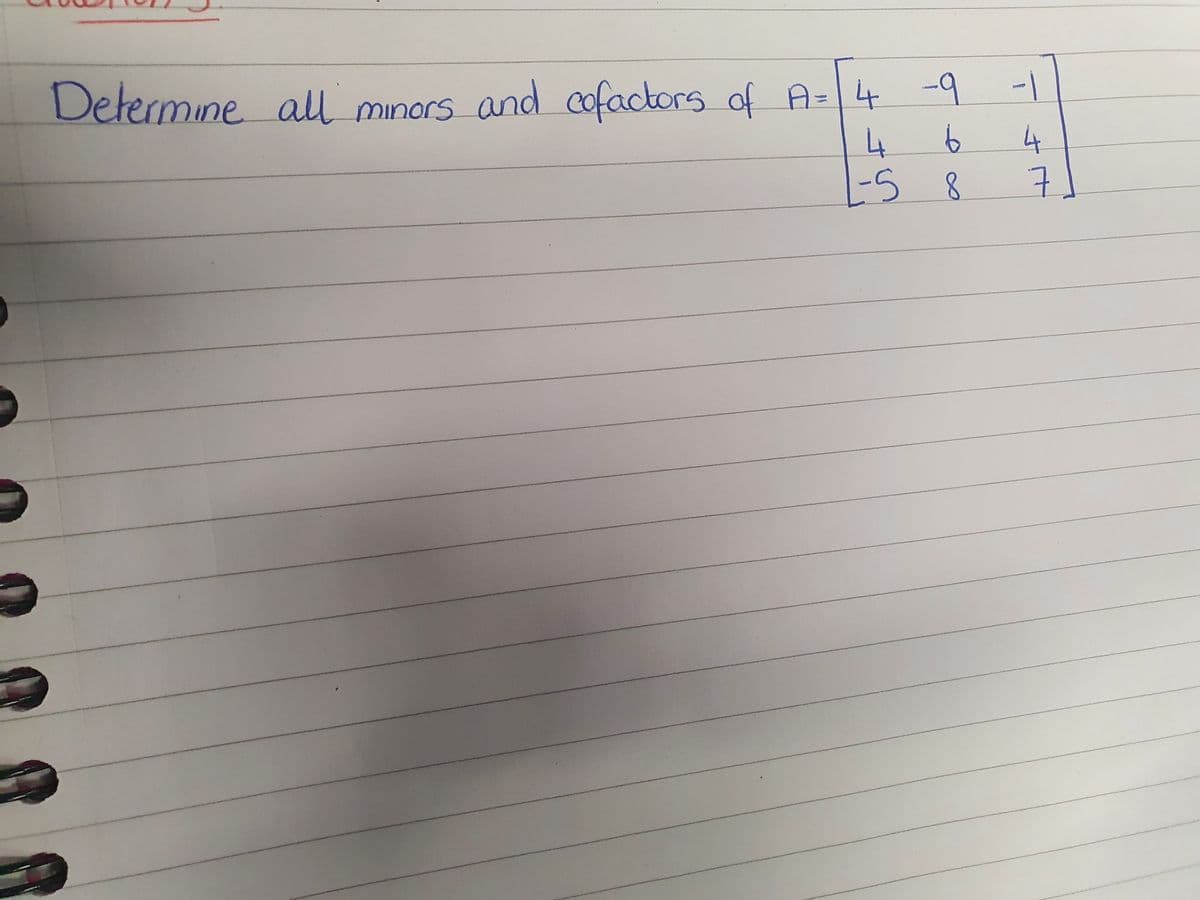 Determine all minors and cofactors of A= [4 -9 -1]
4 6 4
-5 8 7